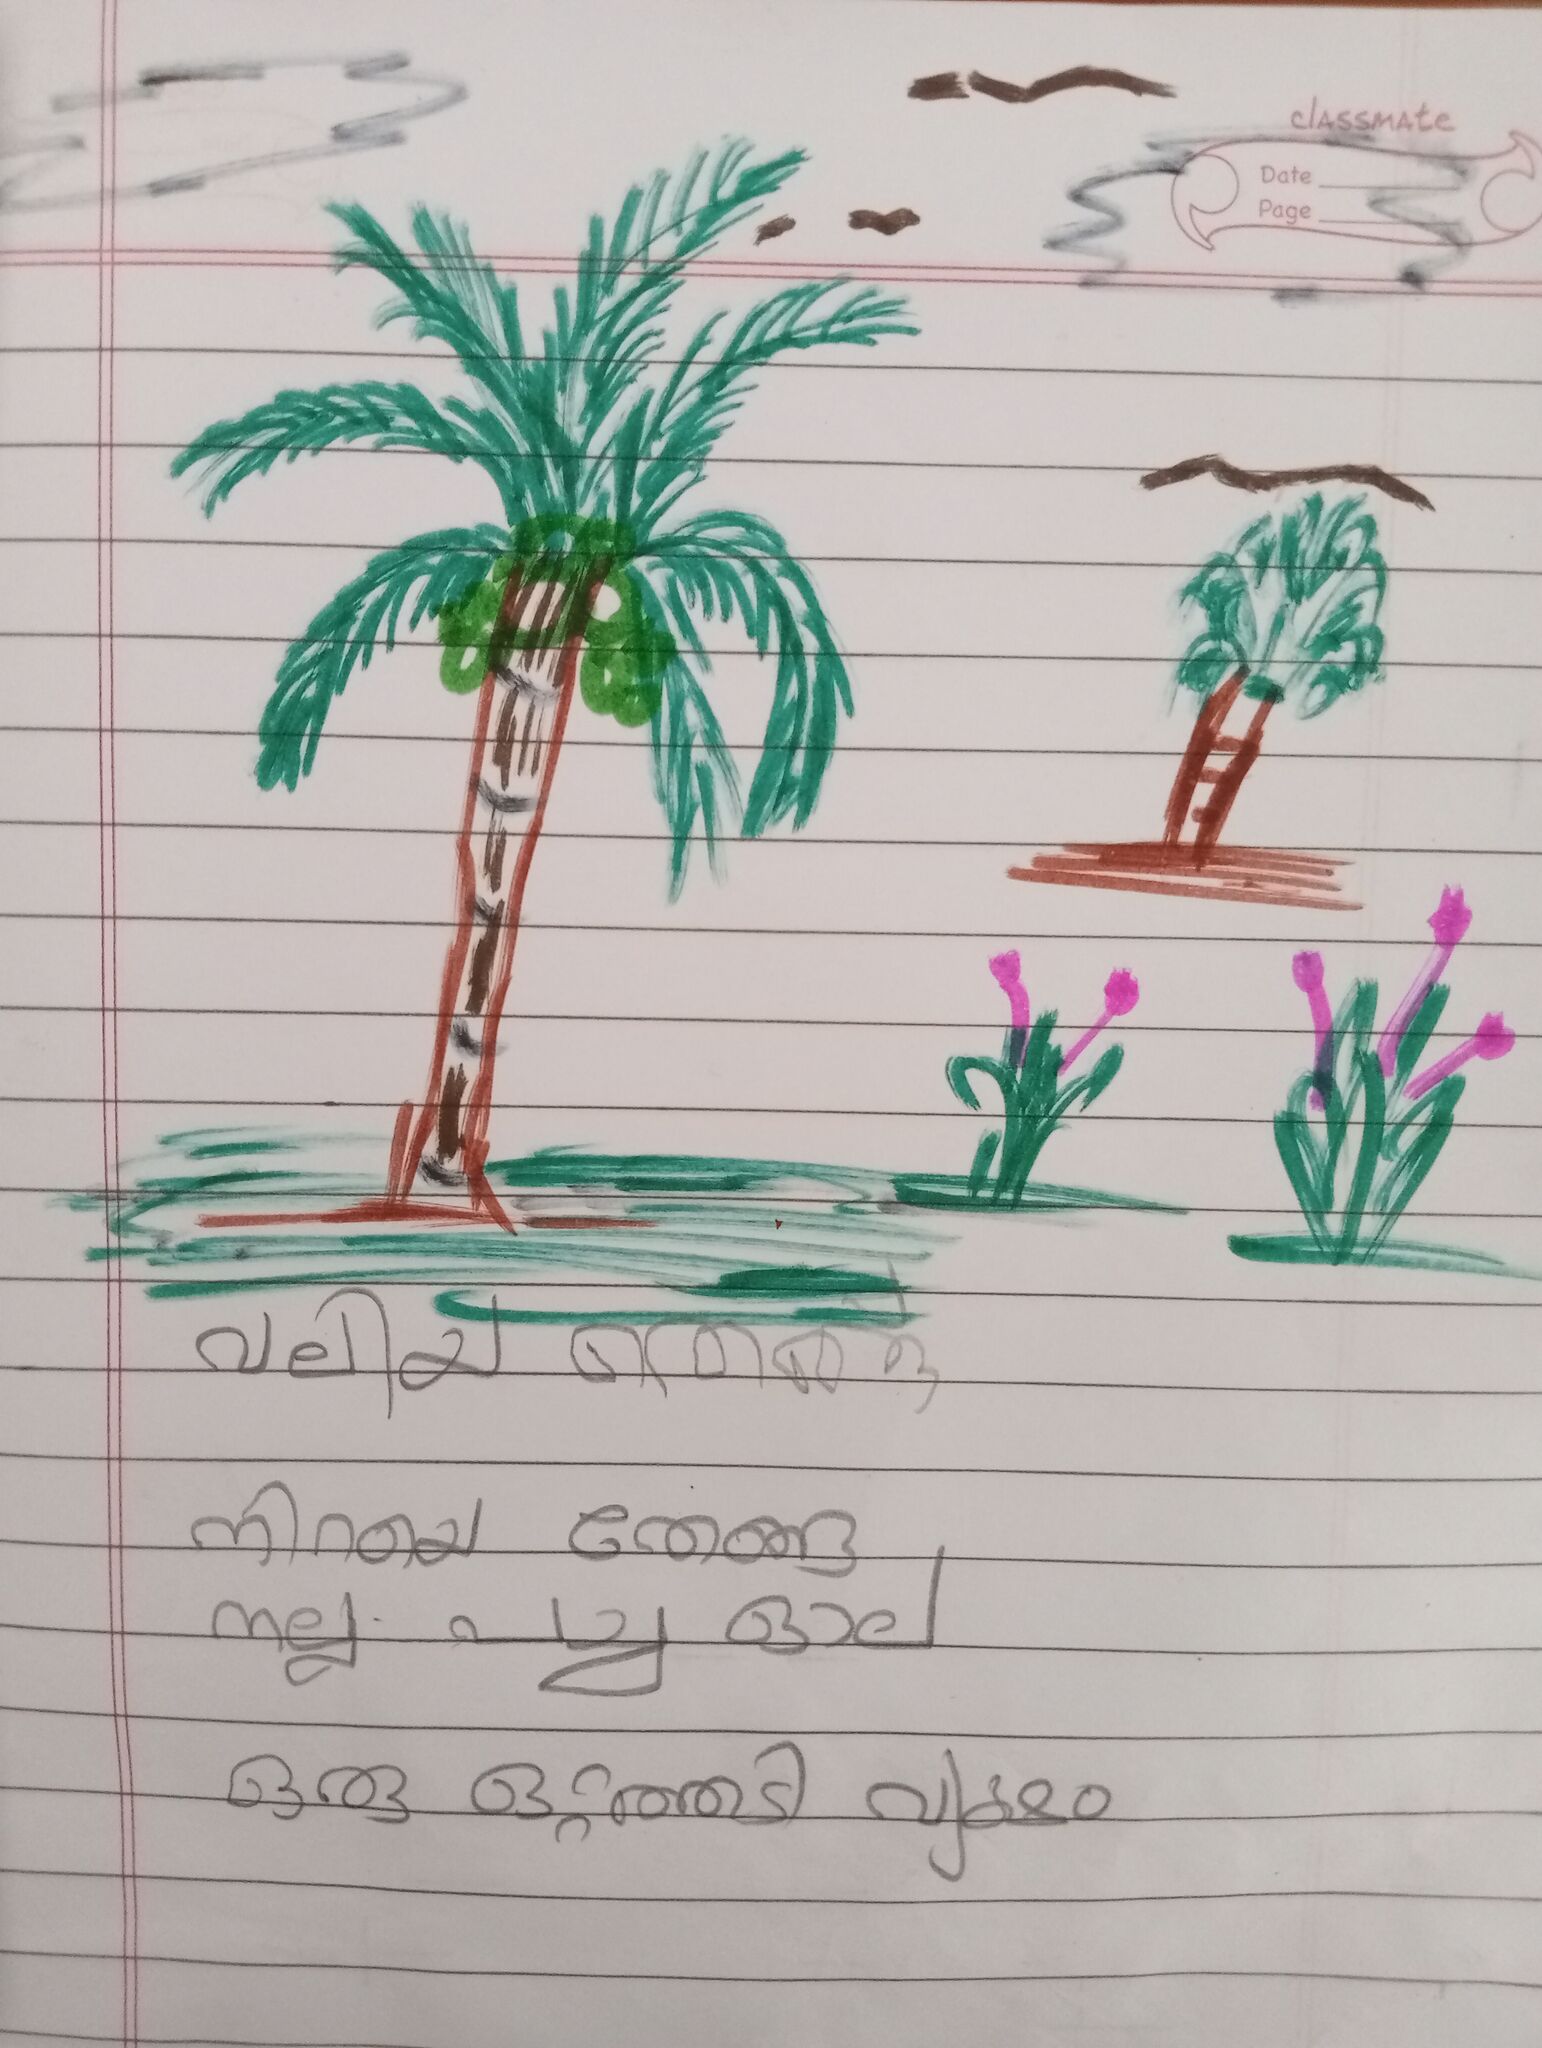 classmate
Date
Page
വലിയ തെങ്ങ്
നിറയെ തേങ്ങ
നല്ല പച്ച ഓല
ഒരു ഒറ്റത്തടി വൃക്ഷം